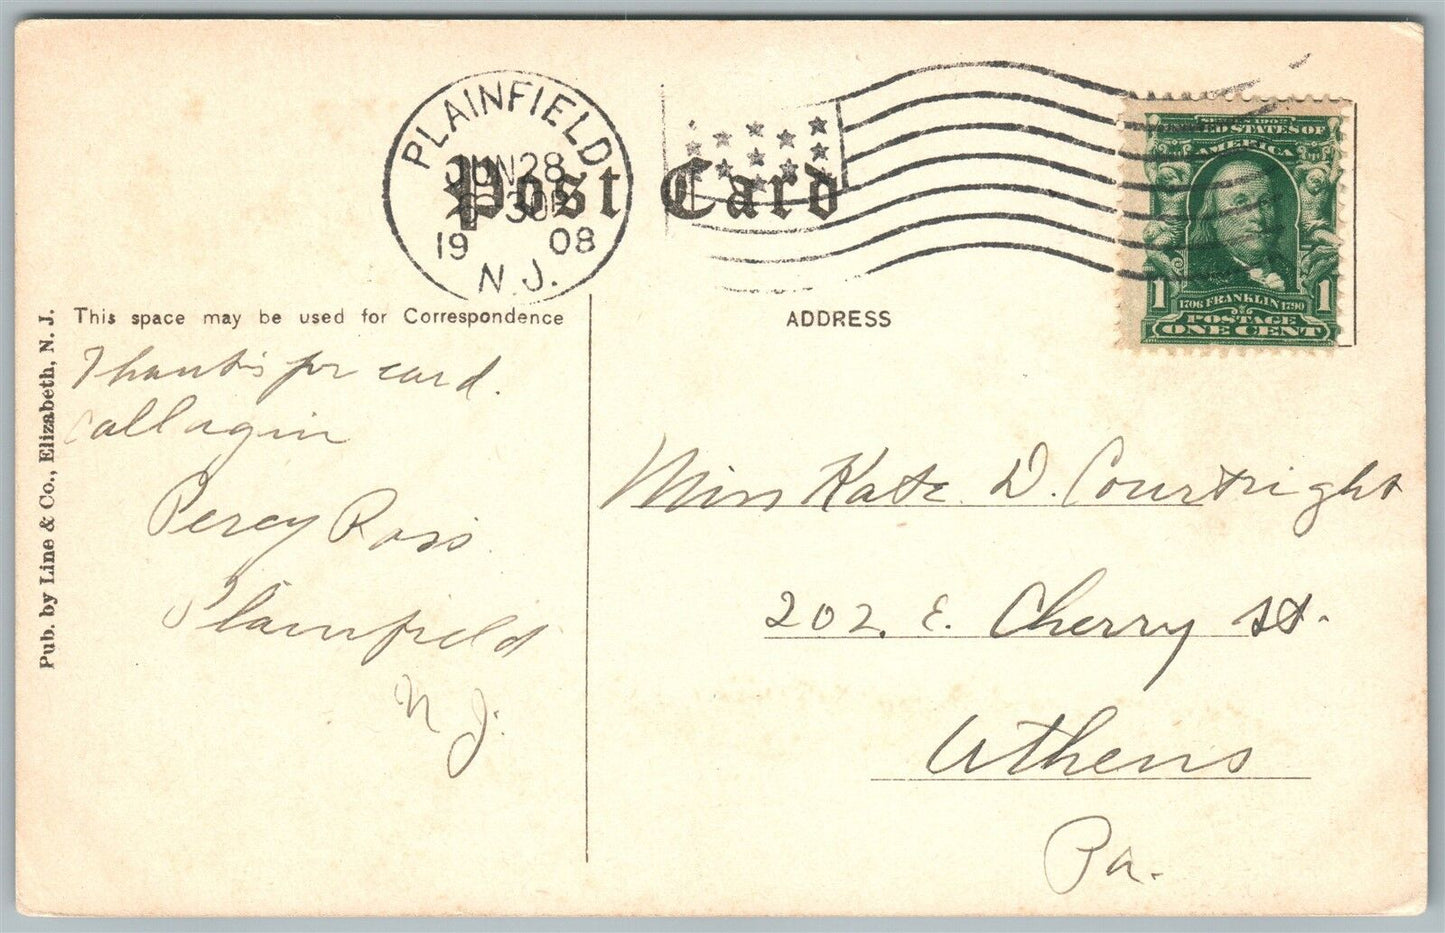 PLAINFIELD
JUN 28
1908
N.J.
Post Card
SERIES 1902
UNITED STATES OF
AMERICA
1 1706 FRANKLIN 1790 1
POSTAGE
ONE CENT
This space may be used for Correspondence
ADDRESS
Pub. by Line & Co., Elizabeth, N. J.
Thanks for card.
Call agin
Percy Ross.
Plainfield
N J.
Miss Kate D. Courtright
202. E. Cherry St.
Athens
Pa.